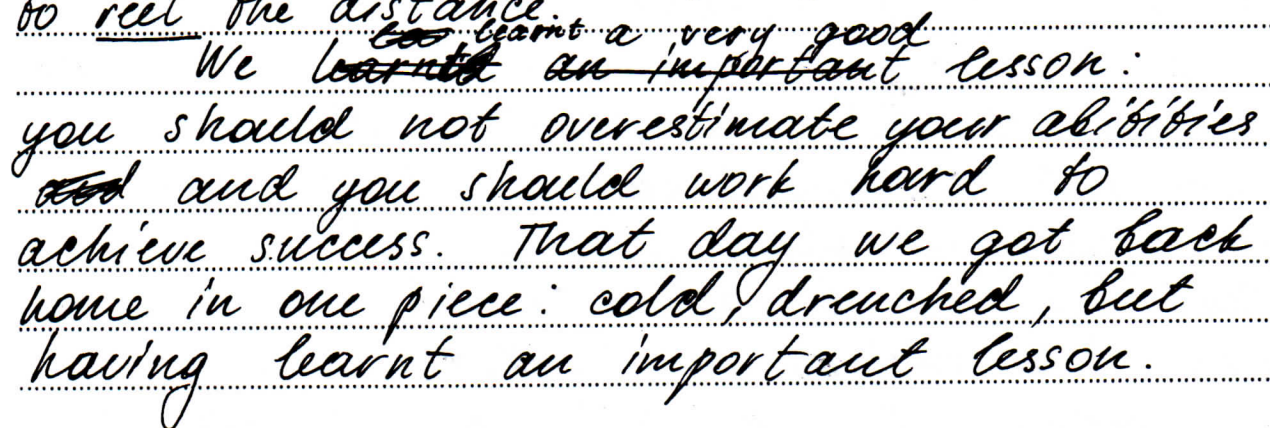 to reel the distance.
learnt a very good
We learnt an important lesson:
you should not overestimate your abilities
and and you should work hard to
achieve success. That day we got back
home in one piece: cold, drenched, but
having learnt an important lesson.